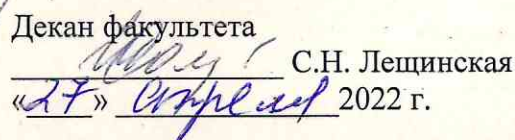 Декан факультета
С.Н. Лещинская
«27» апреля 2022 г.